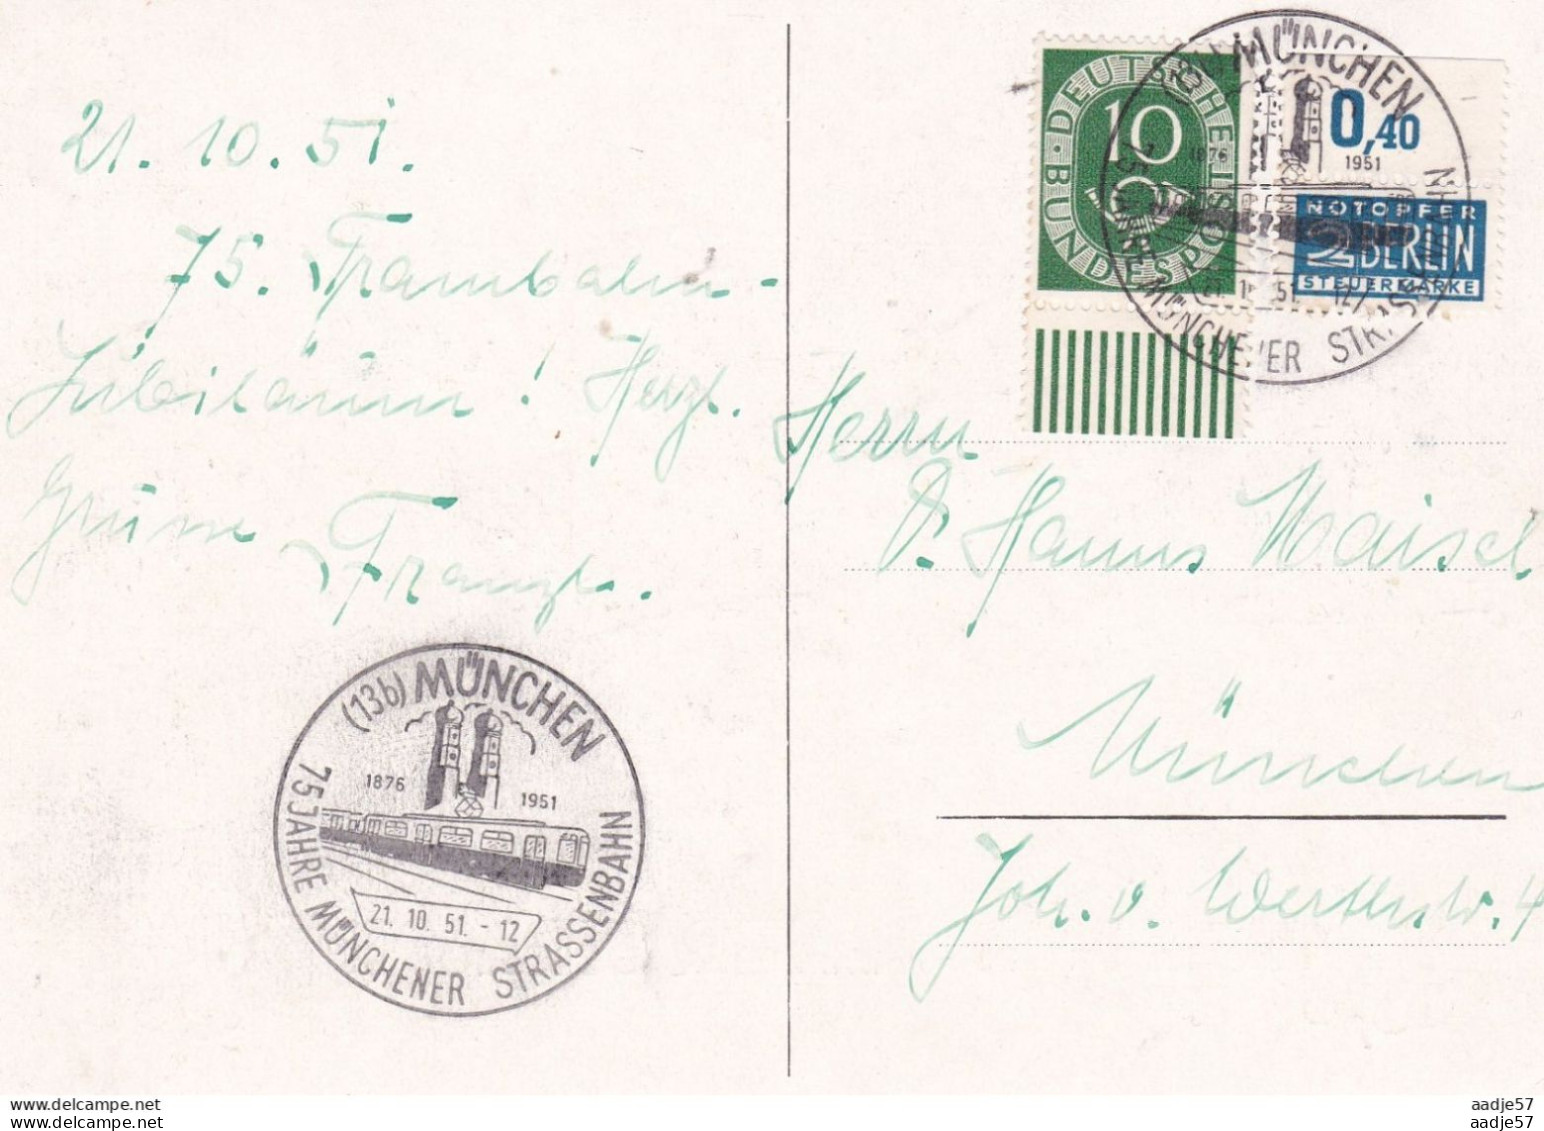 21. 10. 51.
75. Trambahn-
Jubiläum! Herzl.
Grüsse Franzl.
(13b) MÜNCHEN
1876 1951
75 JAHRE MÜNCHENER STRASSENBAHN
21. 10. 51. - 12
DEUTSCHE BUNDESPOST
10
MÜNCHEN
1876 1951
75 JAHRE MÜNCHENER STRASSENBAHN
0,40
NOTOPFER
2 BERLIN
STEUERMARKE
Herrn
Dr. Hanns Maisel
München
Joh. v. Werthstr. 4
delcampe.net
delcampe.net
aadje57
aadje57